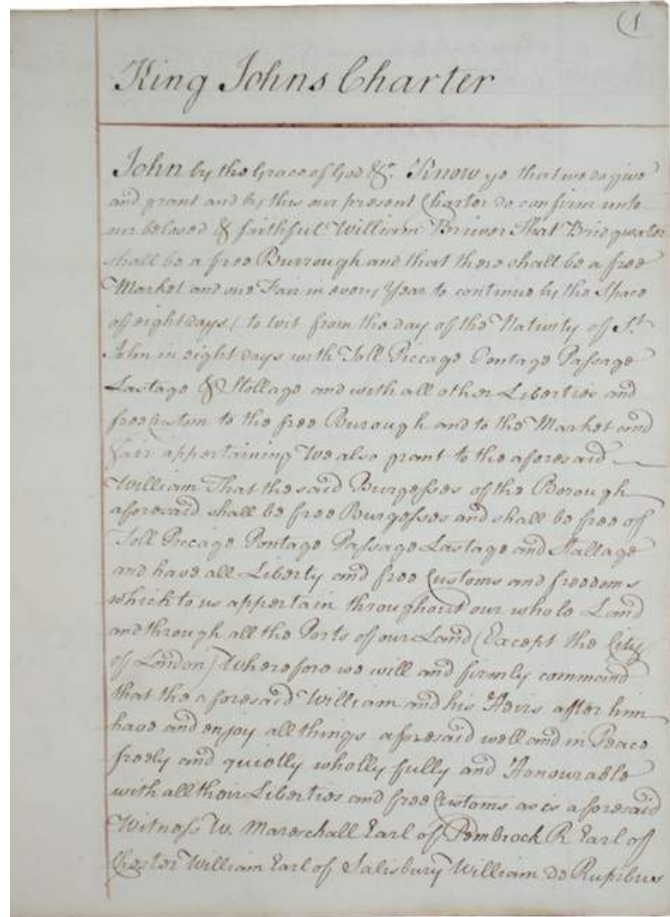 (1
King Johns Charter
John by the Grace of God &c. Know ye that we do give
and grant and by this our present Charter do confirm unto
our beloved & faithful William Briwer That Bridgwater
shall be a free Burrough and that there shall be a free
Market and one Fair in every Year to continue by the Space
of eight days (to wit from the day of the Nativity of St.
John in eight days with Toll Piccage Pontage Passage
Lastage & Stollage and with all other Liberties and
free Custom to the free Burough and to the Market and
Fair appertaining We also grant to the aforesaid
William That the said Burgesses of the Borough
aforesaid shall be free Burgesses and shall be free of
Toll Piccage Pontage Passage Lastage and Stallage
and have all Liberty and free Customs and freedoms
which to us appertain throughout our whole Land
and through all the Ports of our Land (Except the City
of London) Wherefore we will and firmly command
that the aforesaid William and his Heirs after him
have and enjoy all things aforesaid well and in Peace
freely and quietly wholly fully and Honourable
with all their Liberties and free Customs as is aforesaid
Witness W. Mareschall Earl of Pembrock R Earl of
Chester William Earl of Salisbury William de Rupibus